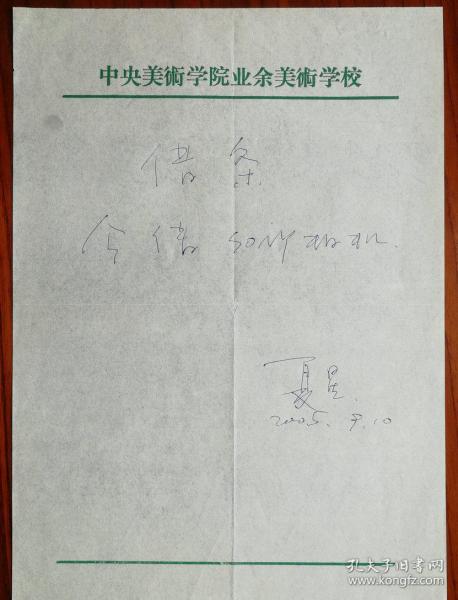 中央美術学院业余美術学校
借条
今借幻灯机
夏星.
2005. 9.10
孔夫子旧书网
www.kongfz.com